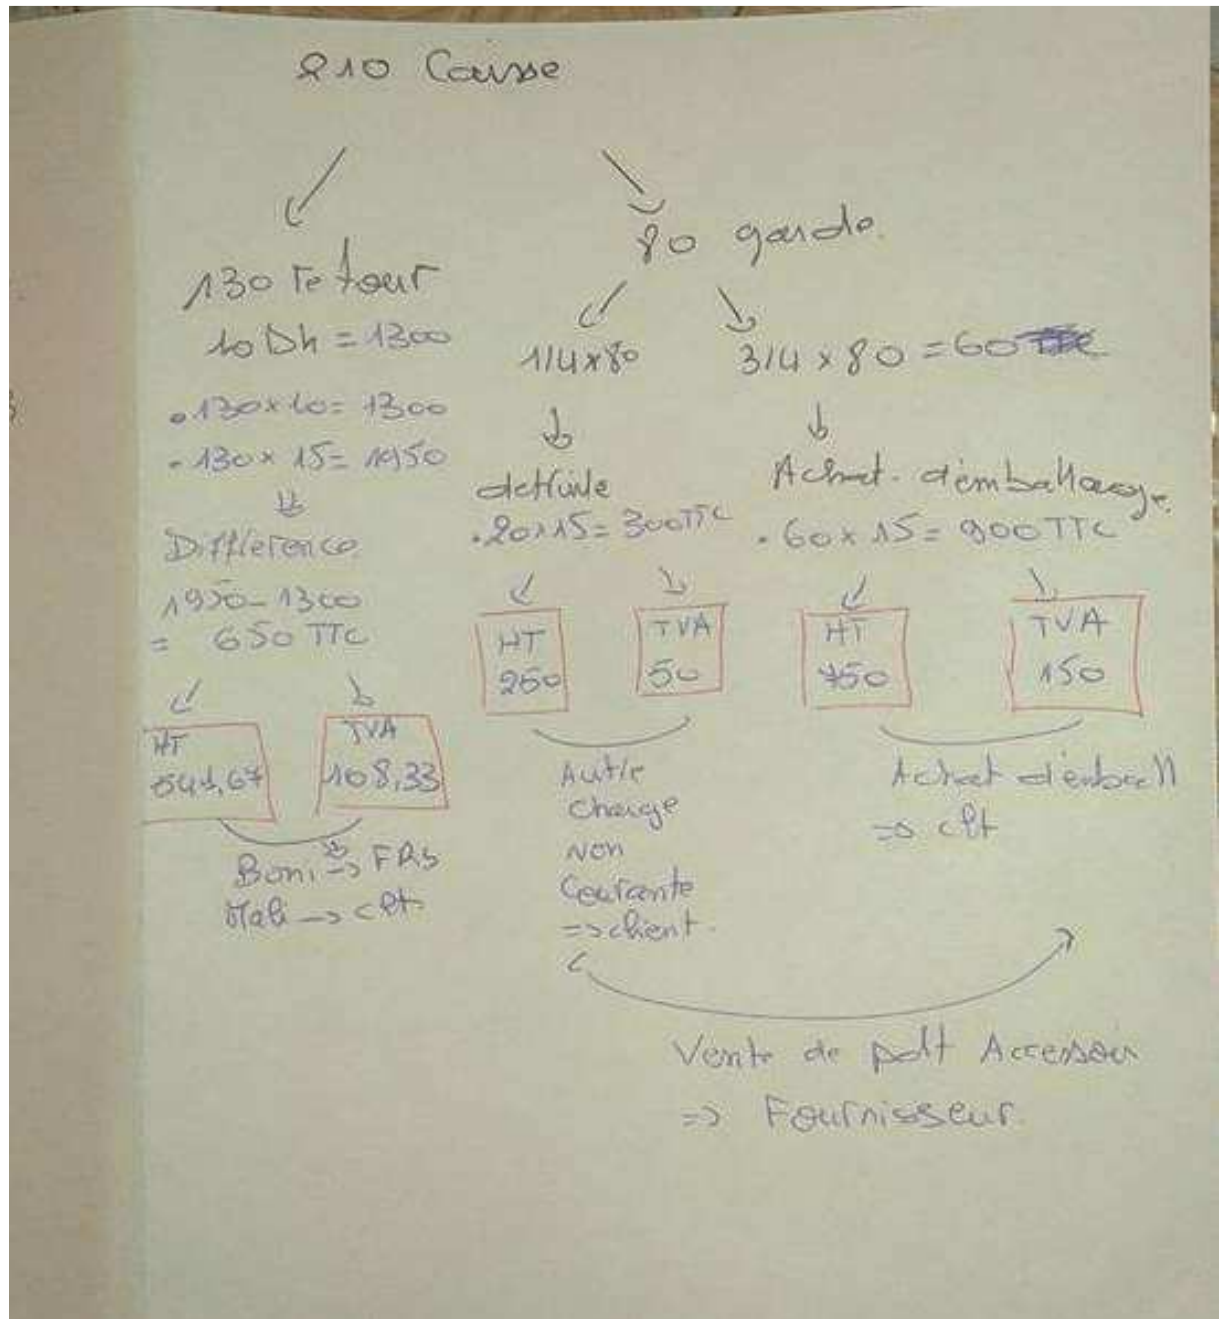 210 Caisse
130 retour
10 Dh = 1300
• 130 x 10 = 1300
- 130 x 15 = 1950
Différence
1950 - 1300
= 650 TTC
HT
541,67
TVA
108,33
Boni -> FRs
Mali -> clt
80 garde.
1/4 x 80
detruite
. 20 x 15 = 300 TTC
HT
250
TVA
50
Autre
charge
non
Courante
=> client.
3/4 x 80 = 60
Achat. d'emballage
. 60 x 15 = 900 TTC
HT
750
TVA
150
Achat d'emball
=> clt
Vente de pdt Accessoir
=> Fournisseur.